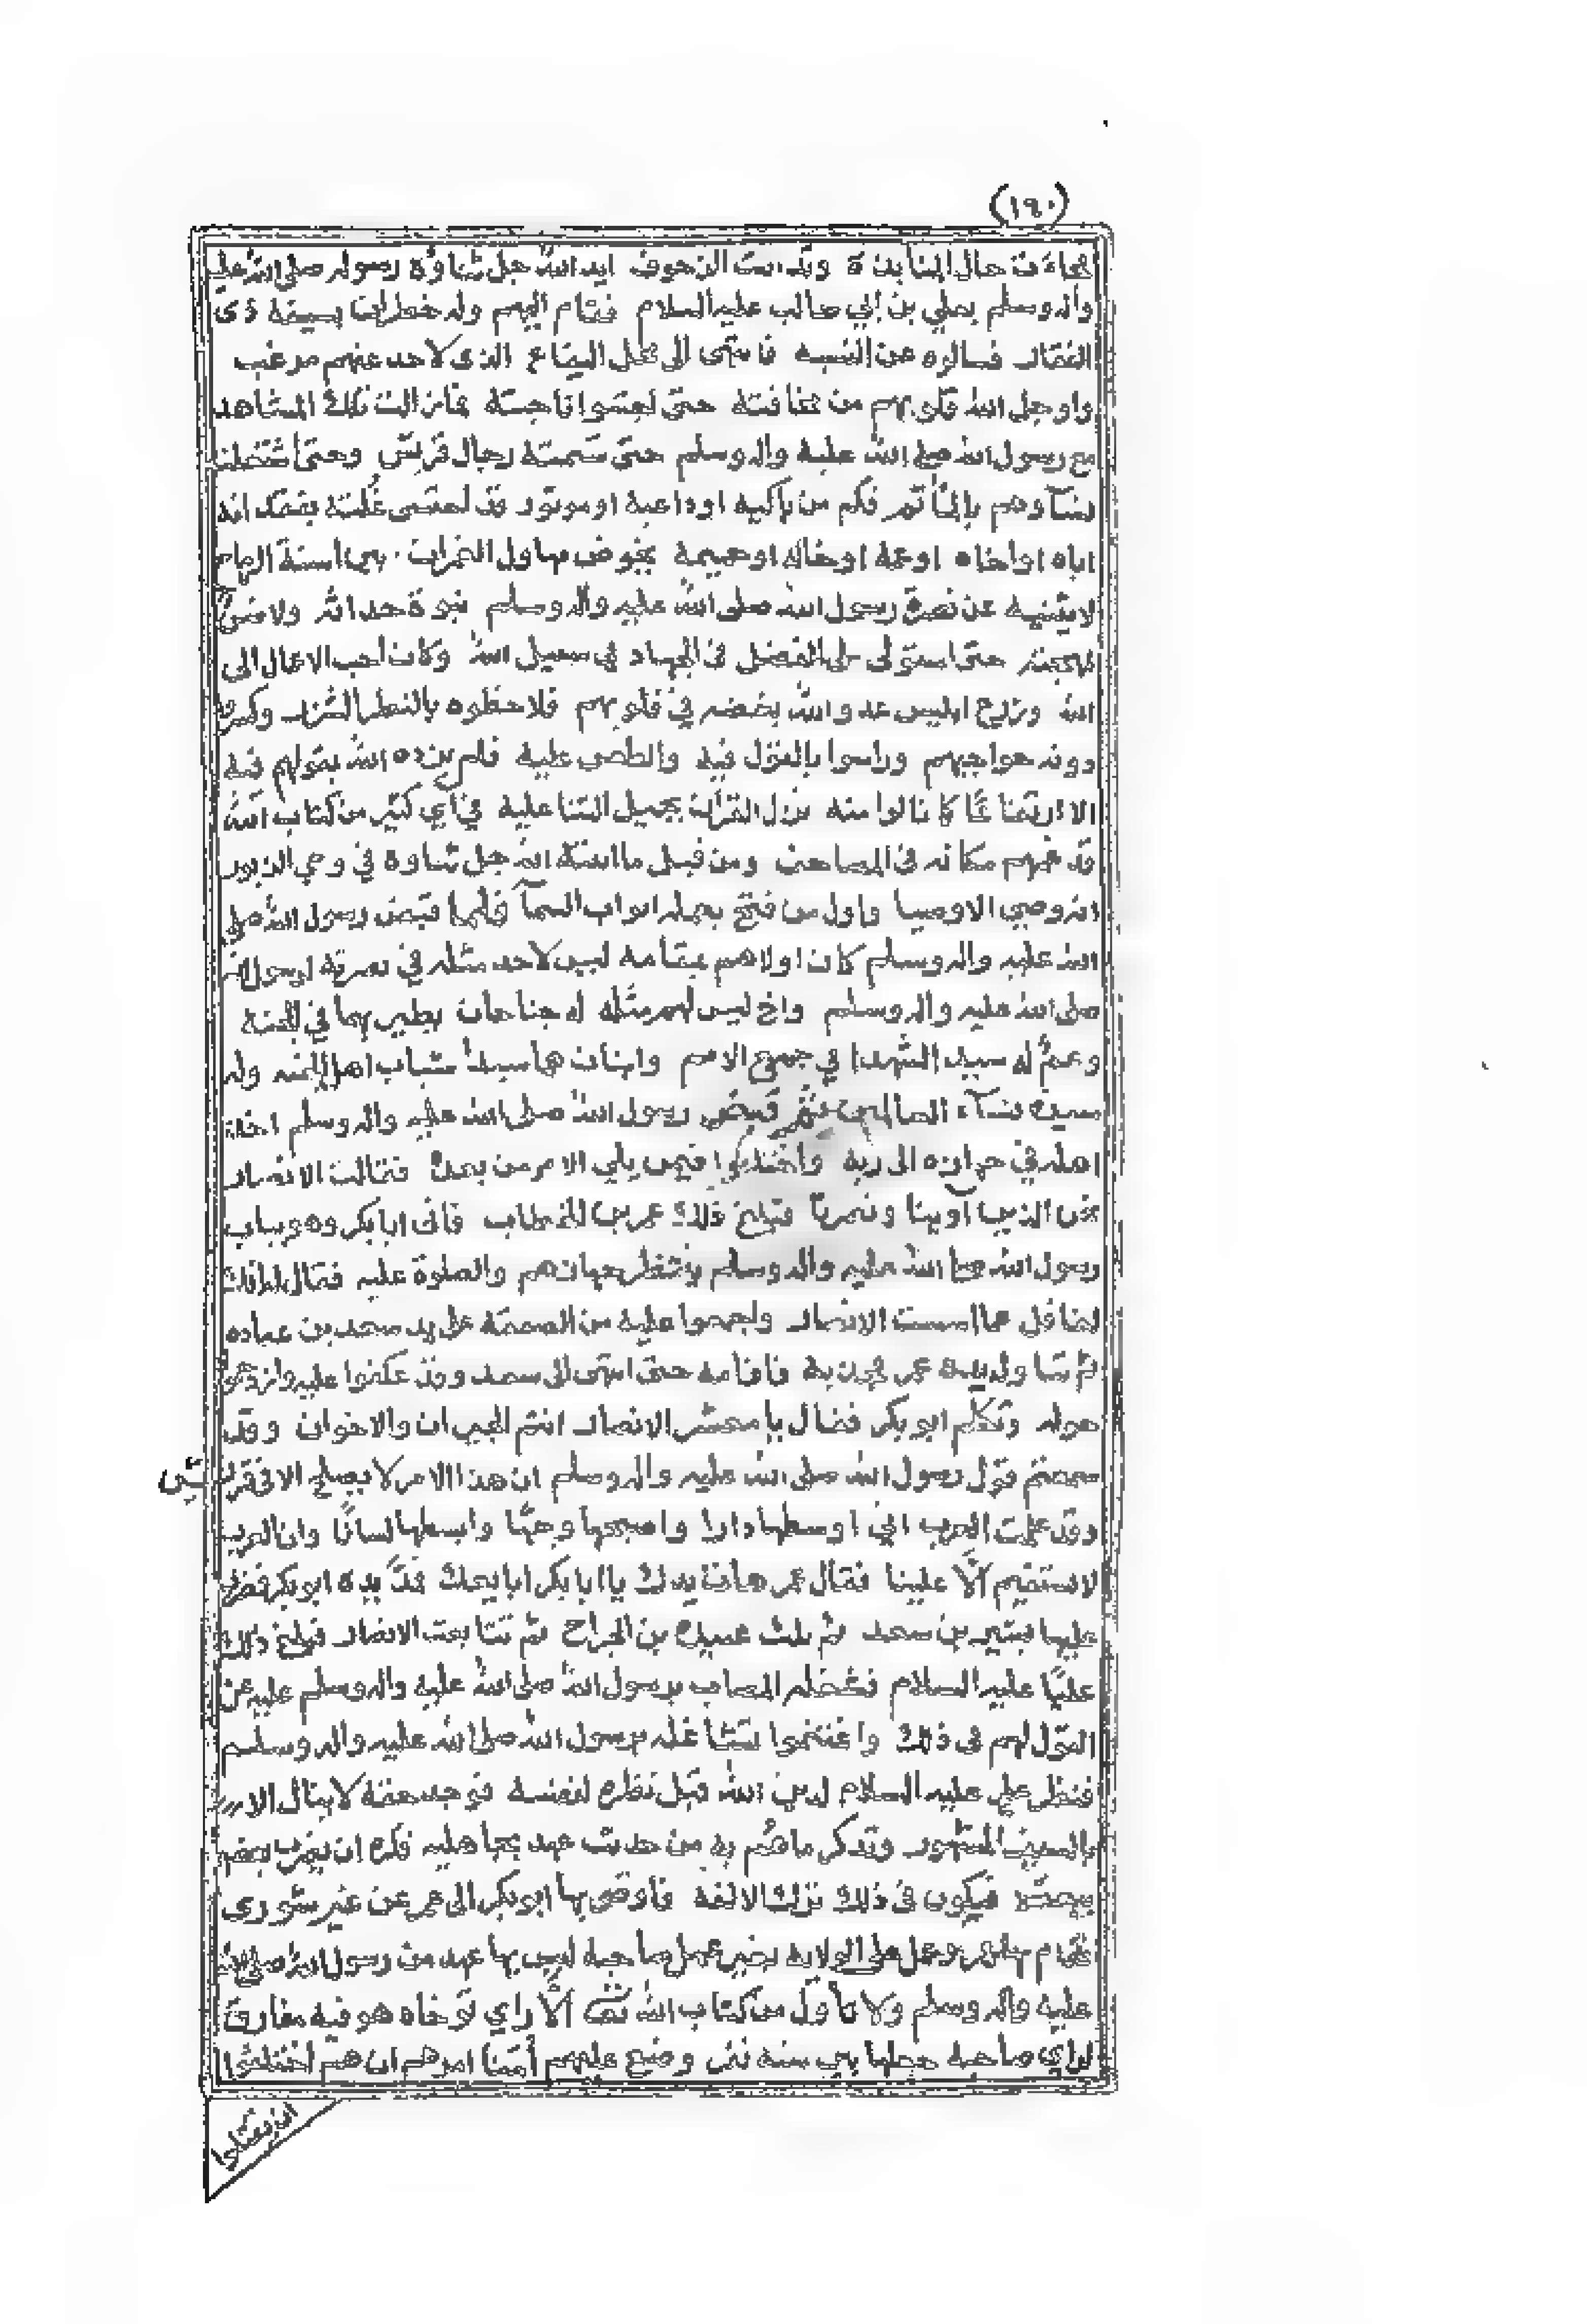 (١٩٠)
حال المنابذة وتدانت الزحوف ايد الله جل ثناؤه رسوله صلى الله عليه
واله وسلم بعلي بن ابي طالب عليه السلام فقام اليهم وله خطران بسيفه ذي
الفقار فسالوه عن النسبه فانتمى الى محل اليفاع الذي لاحد عنهم مرغب
واوجل الله قلوبهم من مخافته حتى تلك المشاهد
مع رسول الله صلى الله عليه واله وسلم حتى رجال قريش وحتى
نسآوهم فكم من باكيه او داعية او موتور قد بفقد انه
اباه او اخاه او عمه او خاله او حميمه يخوض مهاول الغمرات بين اسنة الرماح
لا يثنيه عن نصرة رسول الله صلى الله عليه واله وسلم
مهجته حتى استولى على الفضل في الجهاد في سبيل الله وكان احب الاعمال الى
الله وزرع ابليس عدو الله بغضه في قلوبهم فلاحظوه بالنظر الشزر
دونه حواجبهم وراسوا بالقول فيه والطعن عليه فلم يزده الله بقولهم فيه
الا ارتفاعا كلما نالوا منه نزل القرآن بجميل الثنا عليه في آي كثير من كتاب الله
قد غمهم مكانه في المصاحف ومن قبل ما اثبته الله جل ثناوه في وحي الزبور
انه وصي الاوصيا واول من فتح بعمله ابواب السمآ فلما قبض رسول الله صلى
الله عليه واله وسلم كان اولاهم بمقامه ليس لاحد مثله في نصرته لرسول الله
صلى الله عليه واله وسلم واخ ليس لهم مثله له جناحان يطير بهما في الجنة
وعم له سيد الشهدا في جميع الامم وابنان هما سيدا شباب اهل الجنه وله
سيدة نسآء العالمين ثم قبض رسول الله صلى الله عليه واله وسلم
اهله في جهازه الى ربه واختلفوا فيمن يلي الامر من بعده فقالت الانصار
نحن الذين آوينا ونصرنا فبلغ ذلك عمر بن الخطاب فاتى ابا بكر وهو بباب
رسول الله صلى الله عليه واله وسلم ينتظر جهازهم والصلوة عليه فقال له انك
لغافل عما اسست الانصار واجمعوا عليه من الصفقة على يد سعد بن عباده
ثم تناول يده عمر فجذبه فاقامه حتى انتهى الى سعد وقد عكفوا عليه وازدحموا
حوله وتكلم ابو بكر فقال يا معشر الانصار انتم الجيران والاخوان وقد
سمعتم قول رسول الله صلى الله عليه واله وسلم ان هذا الامر لا يصلح الا في قريش
وقد علمت العرب اني اوسطها دارا واصبحها وجها وابسطها لسانا وان العرب
لا تستقيم الا علينا فقال عمر هات يدك يا ابا بكر ابايعك فمد يده ابو بكر
عليها بشير بن سعد ثم ثلث عبيدة بن الجراح ثم تتابعت الانصار فبلغ ذلك
عليا عليه السلام فشغله المصاب برسول الله صلى الله عليه واله وسلم عليه عن
القول لهم في ذلك واغتنموا تشاغله برسول الله صلى الله عليه واله وسلم
فنظر علي عليه السلام لدين الله قبل نظره لنفسه فوجد حقه لا ينال الا
بالسيف المشهور وتذكر ما هم به من حدث عهد بجاهليه فكره ان يضرب بعضهم
ببعض فيكون في ذلك ترك الالفه فاوصى بها ابو بكر الى عمر عن غير شورى
فقام بها عمر وعمل في الولاية بغير عمل صاحبه ليس بيده عهد من رسول الله صلى الله
عليه واله وسلم ولا تأول من كتاب الله تعالى الا راي توخاه هو فيه مفارق
لراي صاحبه جعلها بين ستة نفر وضع عليهم أمنا امرهم ان هم اختلفوا
ان يقتلوا